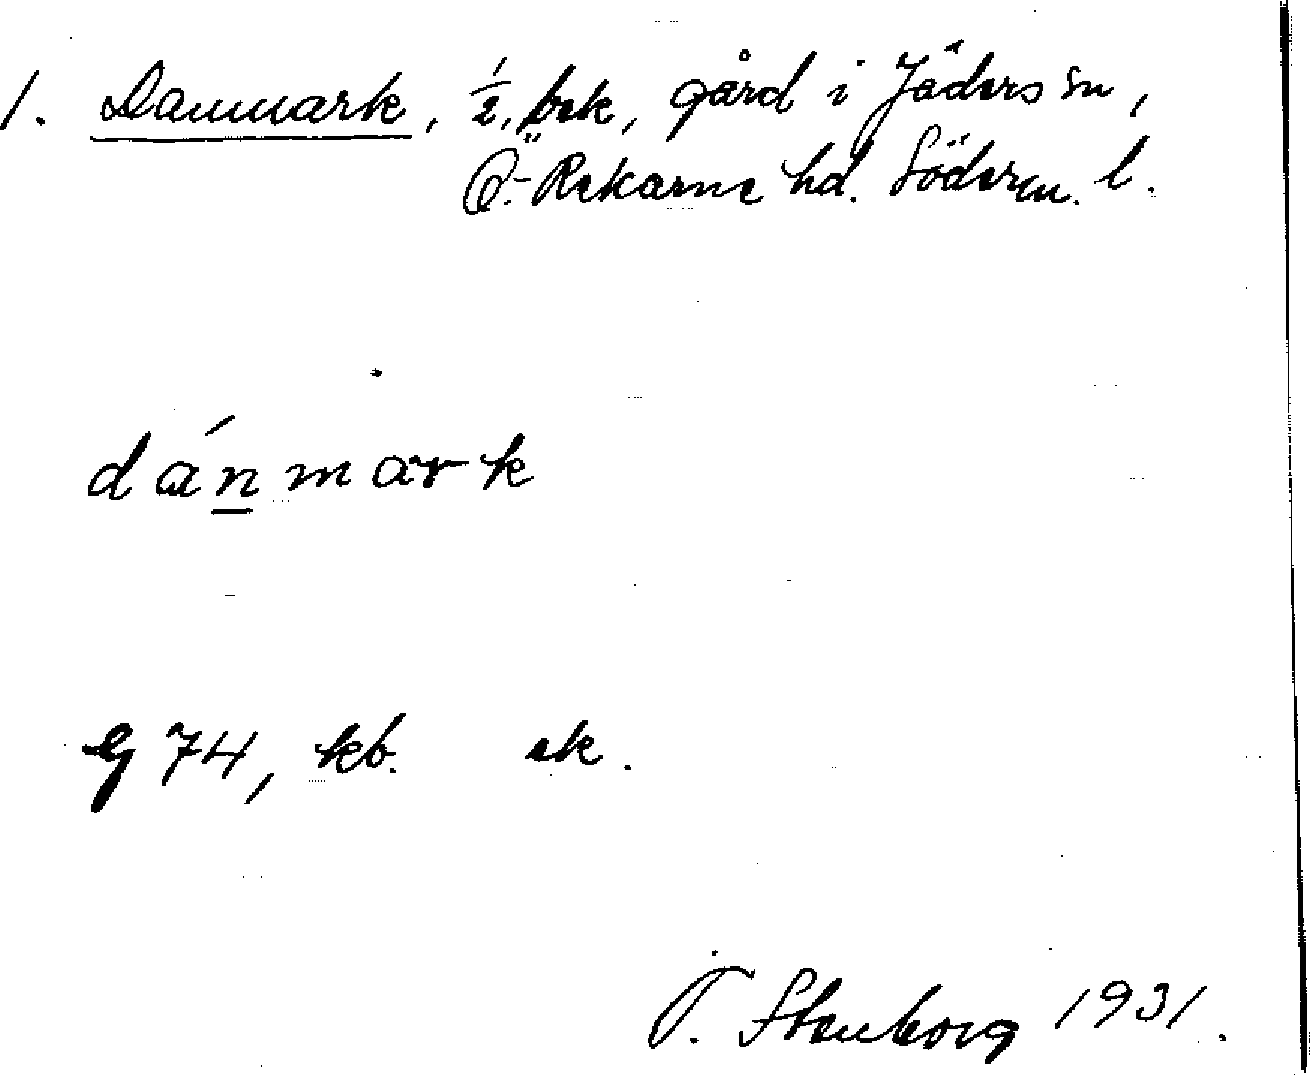 1. Danmark, 1/2, bek, gård i Jäders sn,
Ö.-Rekarne hd. Söderm. l.
dánmark
G 74, kb. ek.
T. Stenborg 1931.